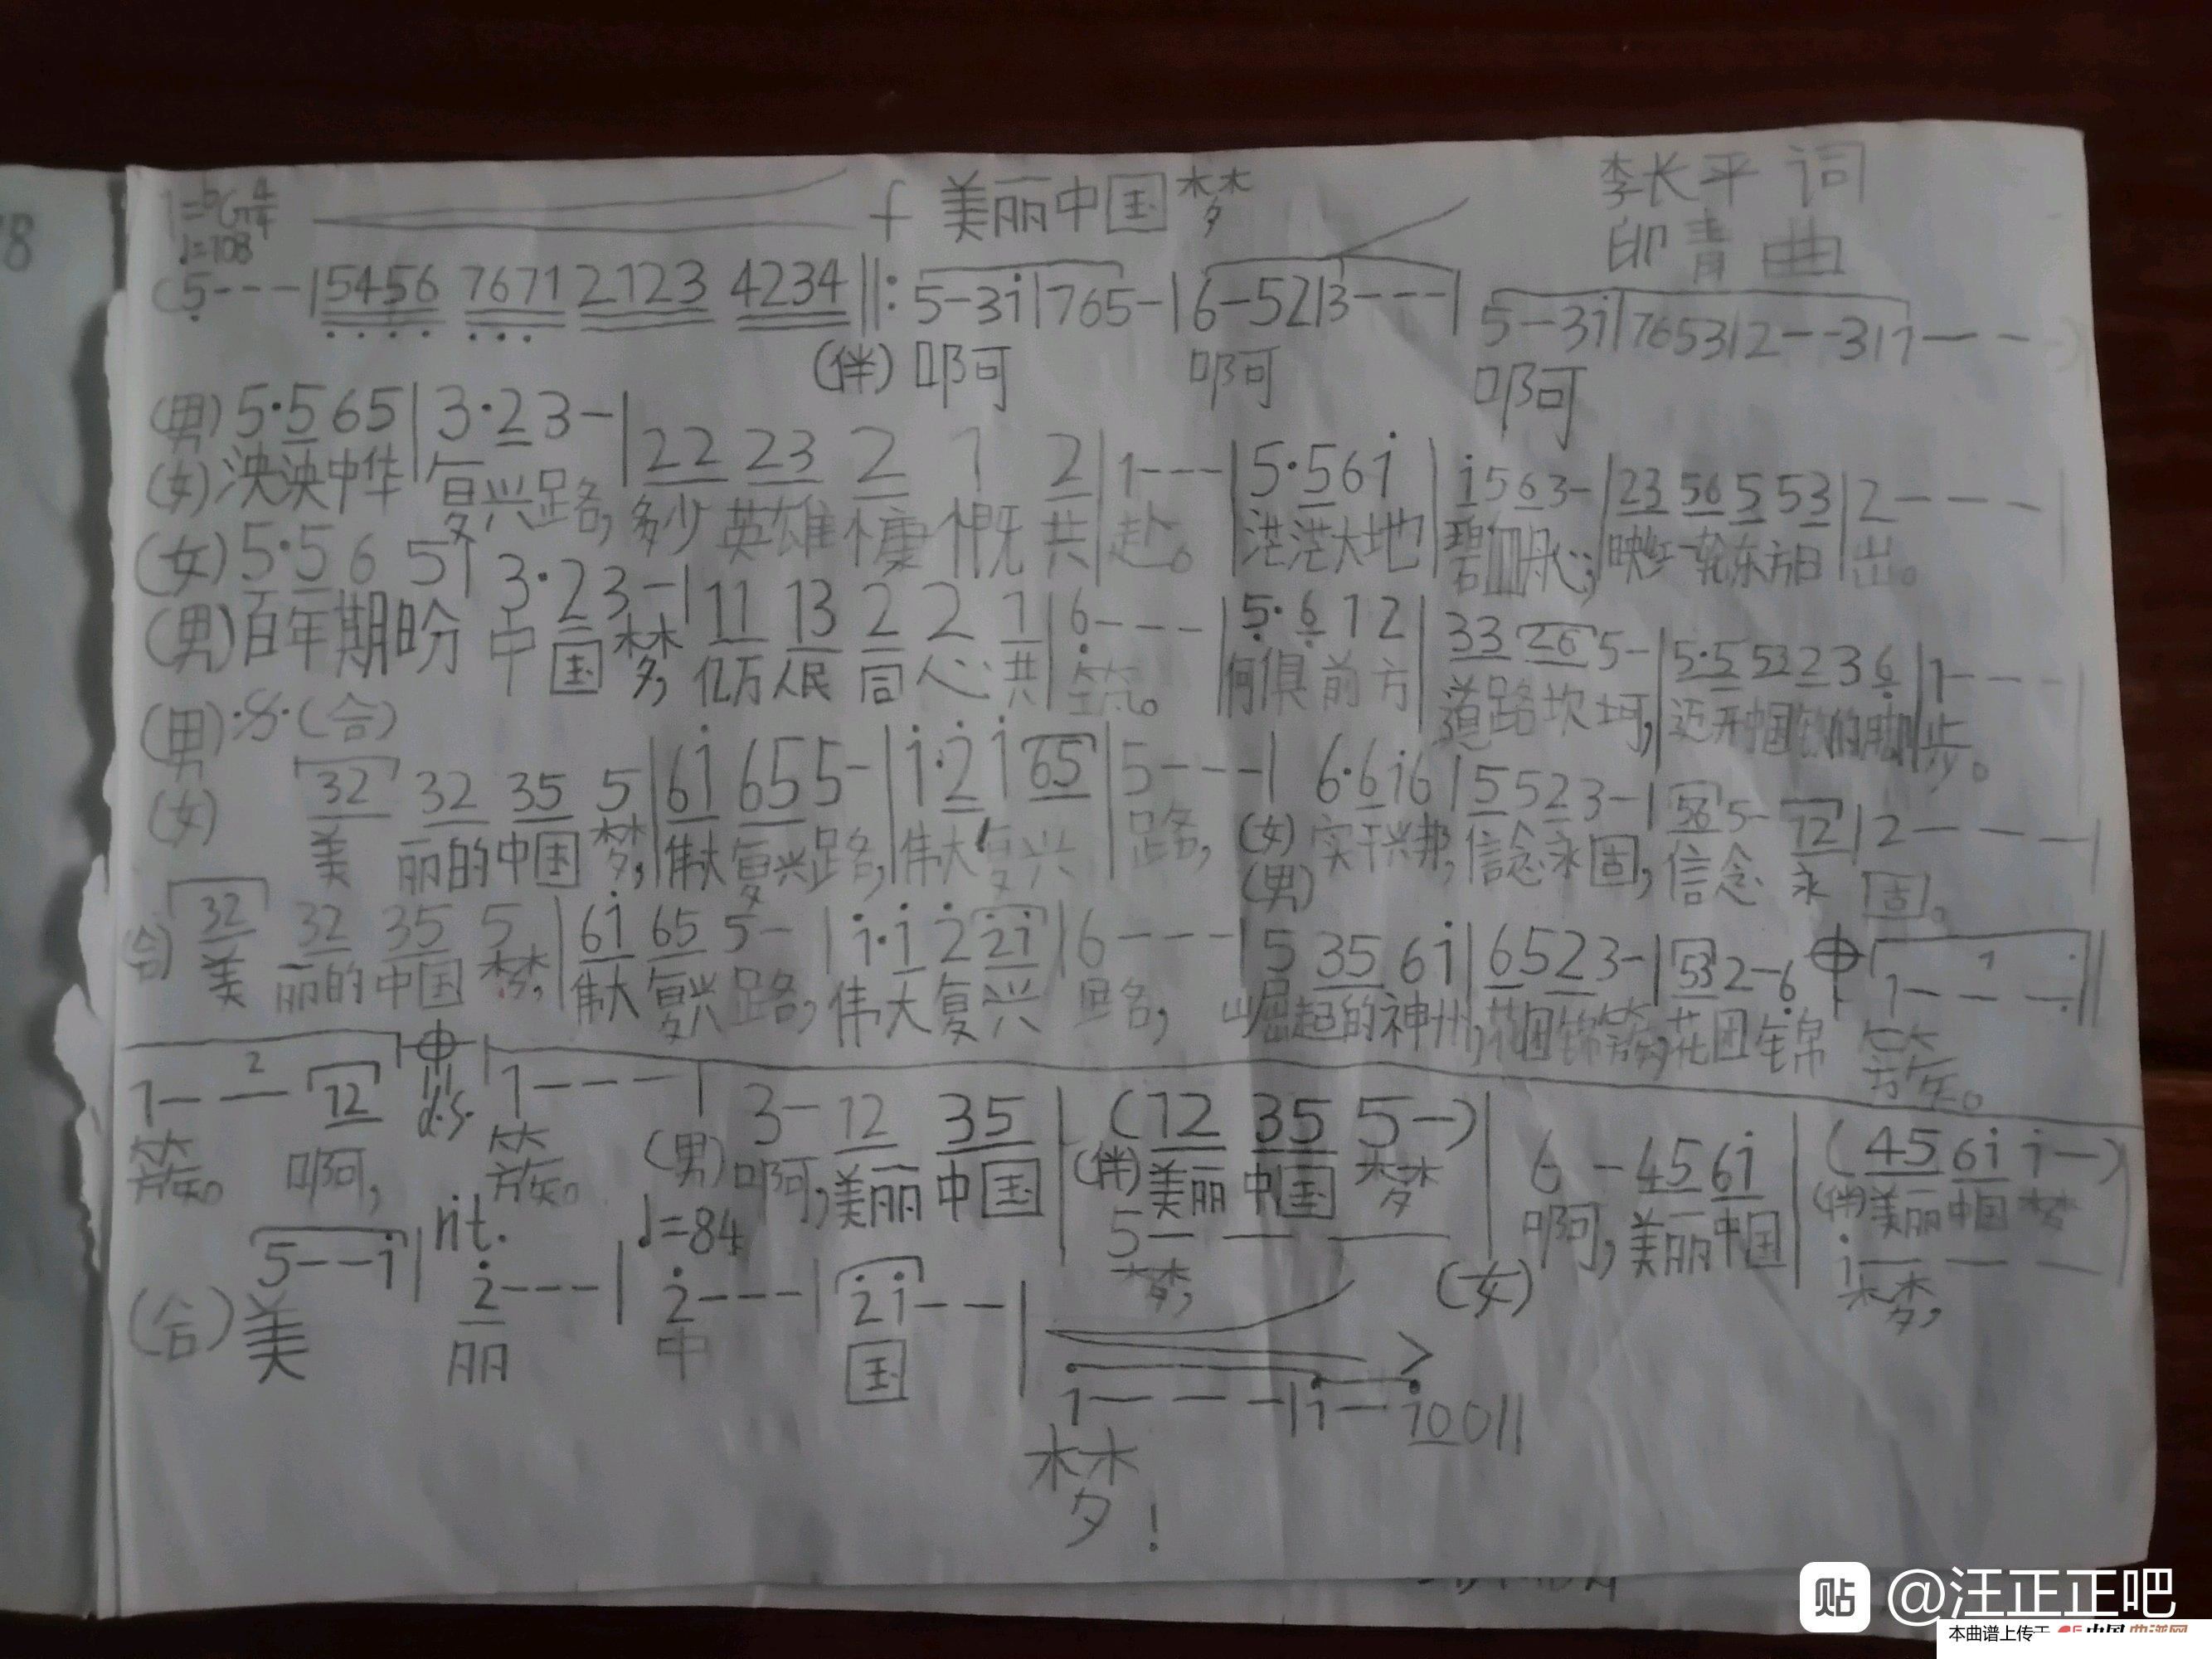 1=♭G 4/4 f 美丽中国梦 李长平 词
♩=108 印青 曲
(5̣---|5456 7671 2123 4234‖:5-3i̇|765-|6-52|3---|5-3i̇|7653|2--3|1---)
(伴)啊 啊 啊
(男)5·5 65|3·2 3-|22 23 2 1 2|1---|5·5 6i̇|i̇5 63-|23 56 5 53|2---|
(女)泱泱中华 复兴路,多少英雄慷慨共赴。茫茫大地碧血丹心,映红一轮东方日出。
(女)5·5 6 5|3·2 3-|11 13 2 2 1|6̣---|5̣·6̣ 12|33 26 5-|5·5 52 2 3 6̣|1---|
(男)百年期盼 中国梦,亿万人民同心共筑。何惧前方道路坎坷,迈开中国的脚步。
(男)·S·(合)
32 32 35 5|6i̇ 65 5-|i̇·2̇ i̇ 65|5---|6·6 i̇6|5 52 3-|56 5- 12|2---|
(女) 美丽的中国梦,伟大复兴路,伟大复兴路,(女)实干兴邦,信念永固,信念永固。
(男)
32 32 35 5|6i̇ 65 5-|i̇·i̇ 2̇ 2̇i̇|6---|5 35 6i̇|6 52 3-|53 2-6̣ 1 1---:‖
(合)美丽的中国梦,伟大复兴路,伟大复兴路,崛起的神州,花团锦簇,花团锦簇。
2
1-- 12 d.s. 1---|3-12 35|(12 35 5-)|6-45 6i̇|(45 6i̇ i̇-)
簇。 啊, 簇。 (男)啊,美丽中国(伴)美丽中国梦 啊,美丽中国(伴)美丽中国梦
rit. ♩=84 5--- i̇---
5--i̇|2̇---|2̇---|2̇i̇--| 梦, (女) 梦,
(合)美 丽 中 国 >
i̇---|i̇--i̇0 0‖
梦!
贴 @汪正正吧
本曲谱上传于 中国曲谱网